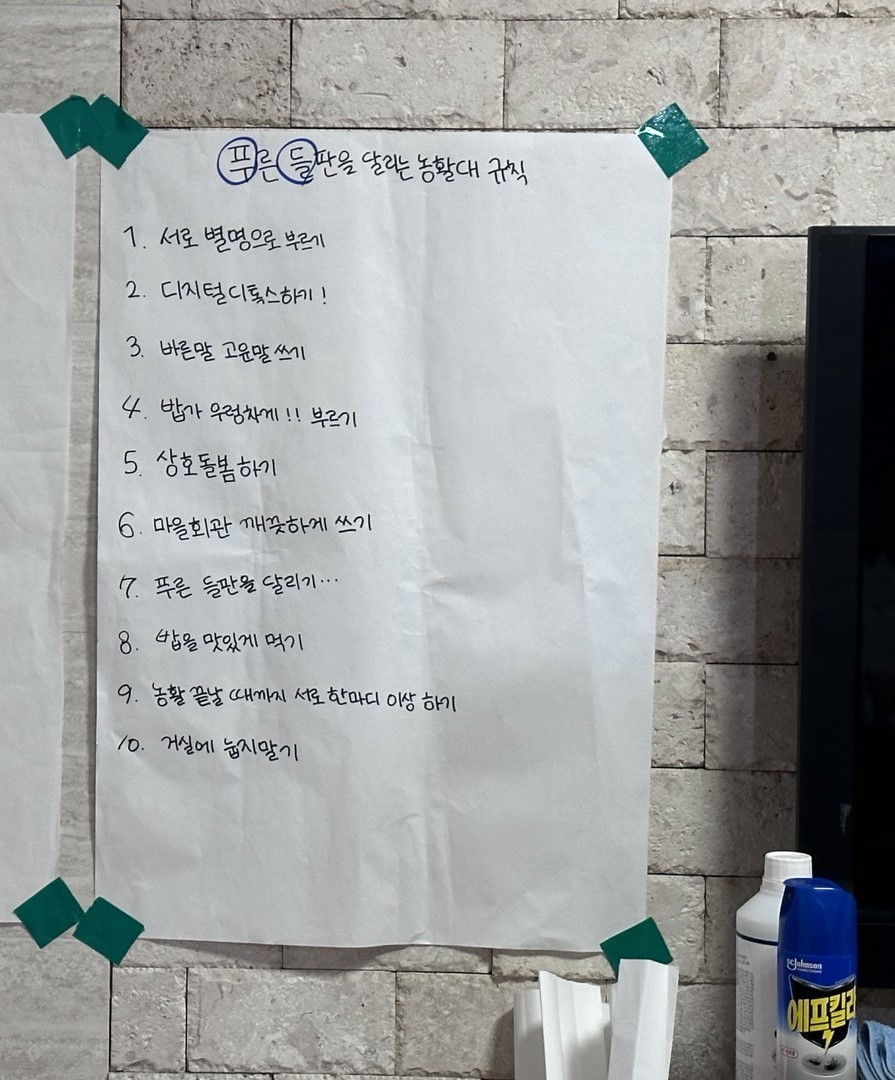 푸른 들판을 달리는 농활대 규칙
1. 서로 별명으로 부르기
2. 디지털디톡스하기!
3. 바른말 고운말 쓰기
4. 밥가 우렁차게!! 부르기
5. 상호돌봄하기
6. 마을회관 깨끗하게 쓰기
7. 푸른 들판을 달리기...
8. 밥을 맛있게 먹기
9. 농활 끝날 때까지 서로 한마디 이상 하기
10. 거실에 눕지말기
scJohnson
에프킬라